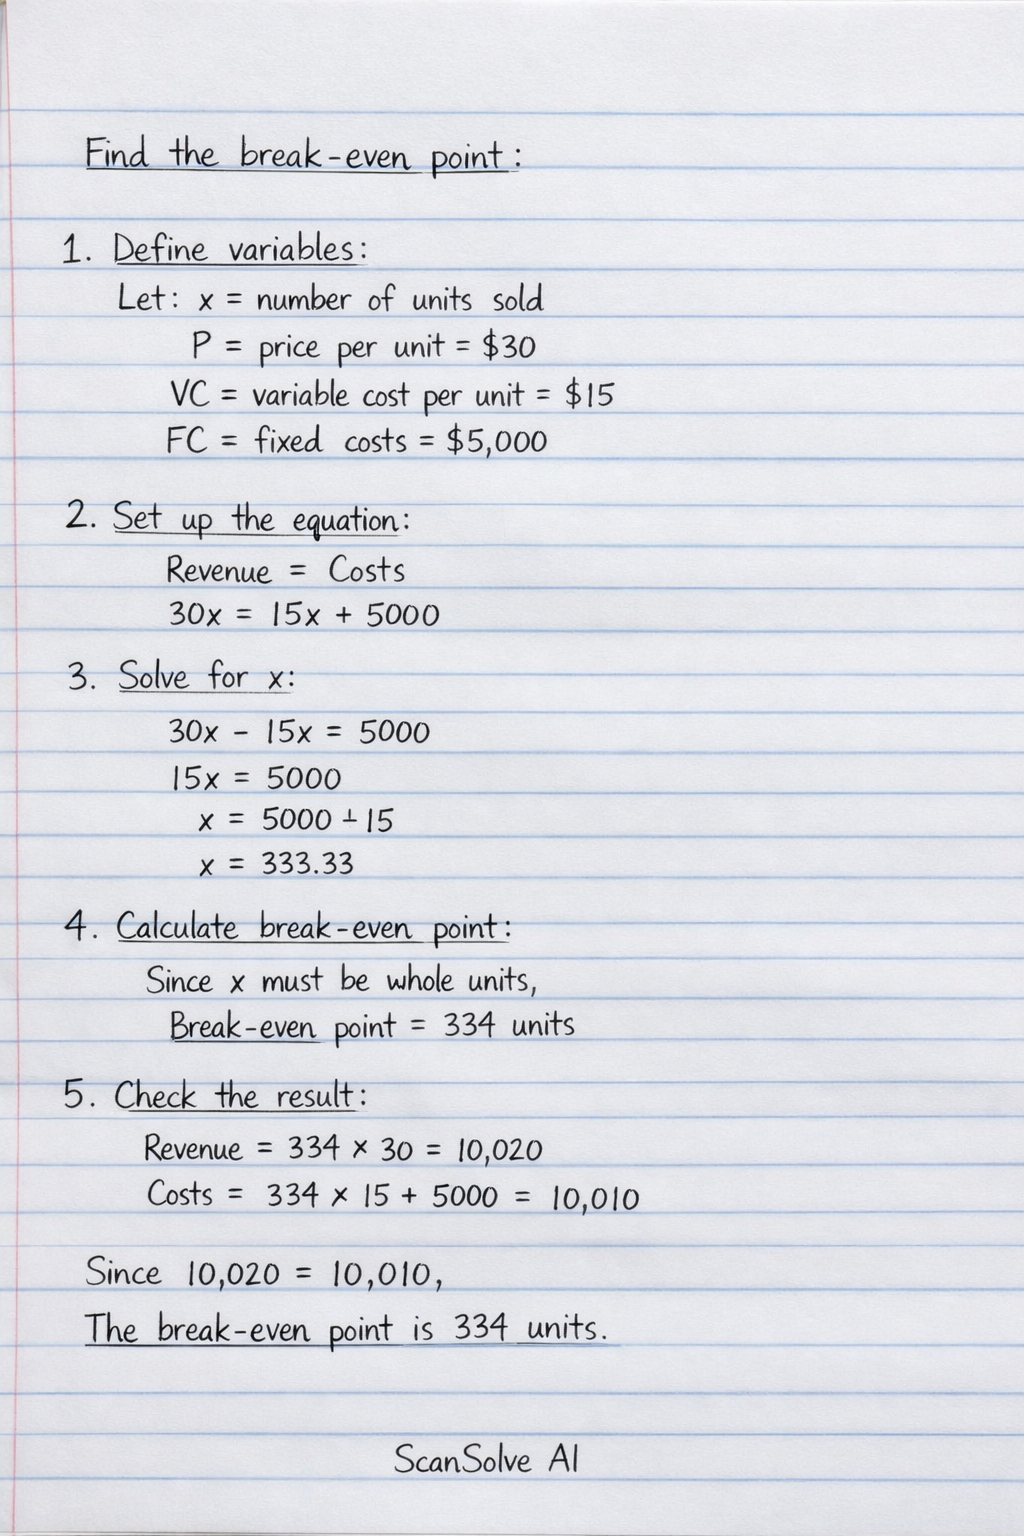 Find the break-even point:
1. Define variables:
Let: x = number of units sold
P = price per unit = $30
VC = variable cost per unit = $15
FC = fixed costs = $5,000
2. Set up the equation:
Revenue = Costs
30x = 15x + 5000
3. Solve for x:
30x - 15x = 5000
15x = 5000
x = 5000 ∸ 15
x = 333.33
4. Calculate break-even point:
Since x must be whole units,
Break-even point = 334 units
5. Check the result:
Revenue = 334 × 30 = 10,020
Costs = 334 × 15 + 5000 = 10,010
Since 10,020 = 10,010,
The break-even point is 334 units.
ScanSolve AI